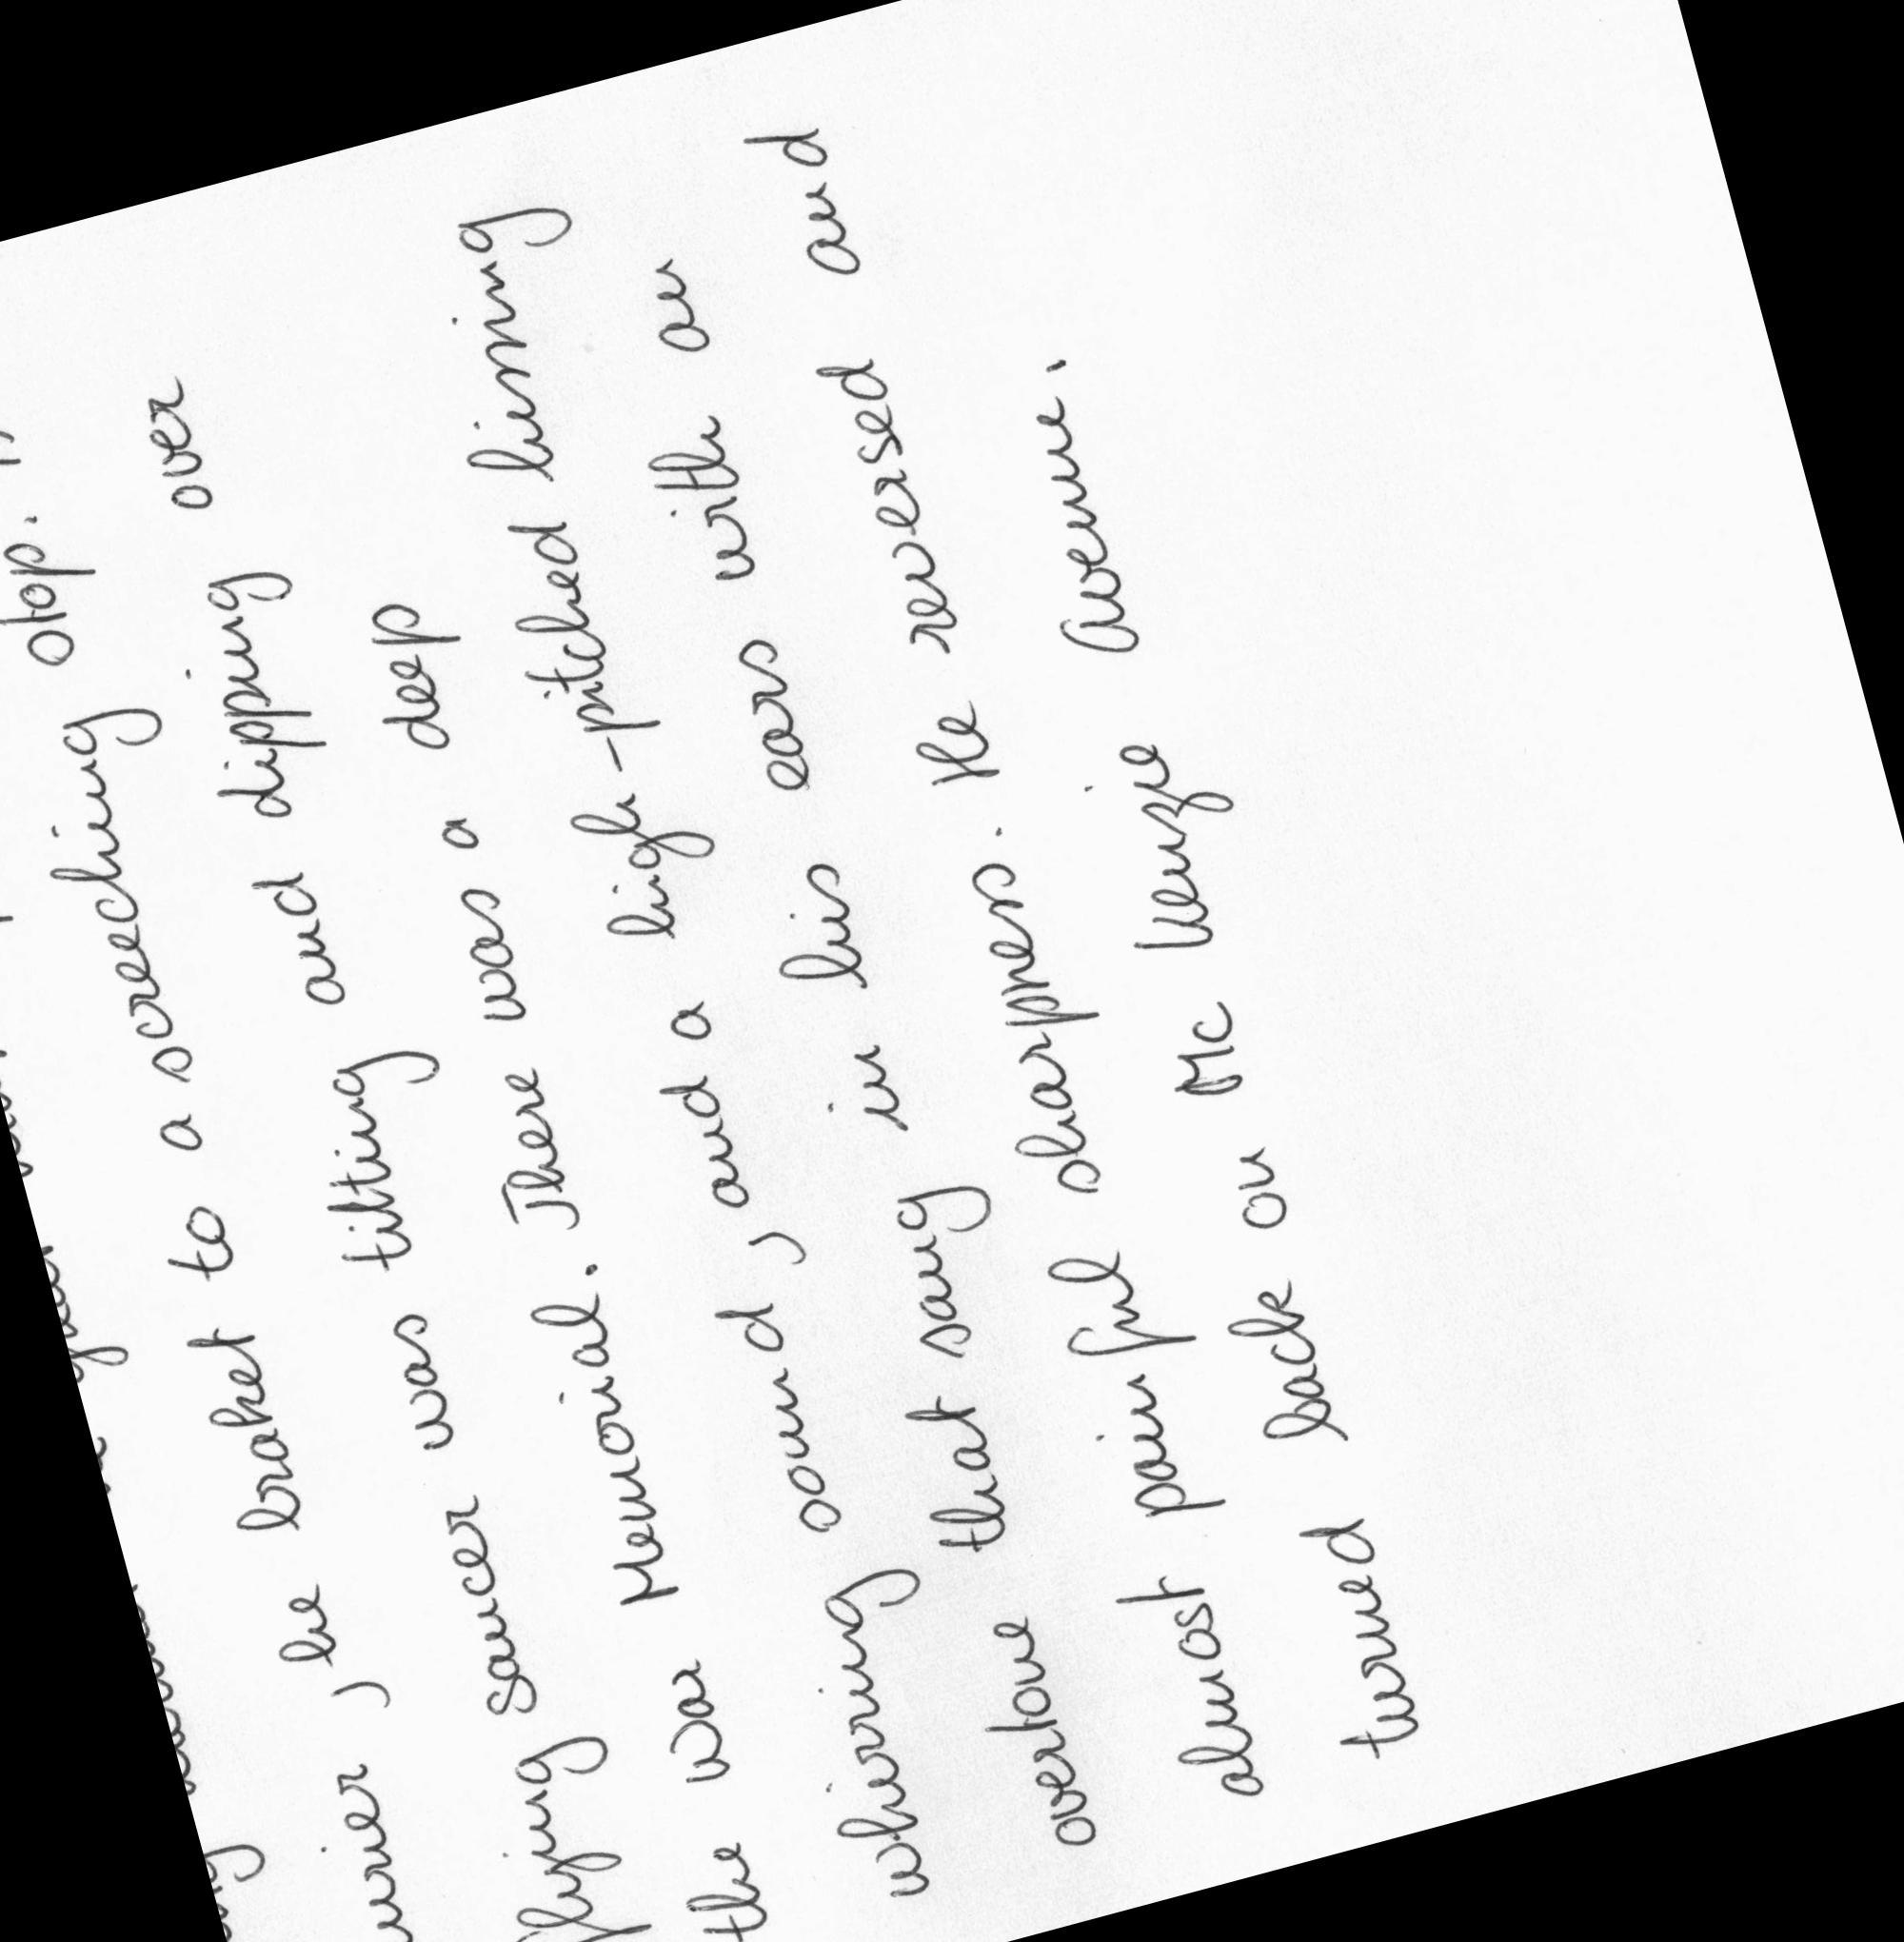 he braket to a screeching stop.
flying saucer was tilting and dipping over
the War Memorial. There was a deep
whirring sound, and a high-pitched himing
overtone that sang in his ears with an
almost painful sharpness. He reversed and
turned back on Mc Kenzie Avenue.